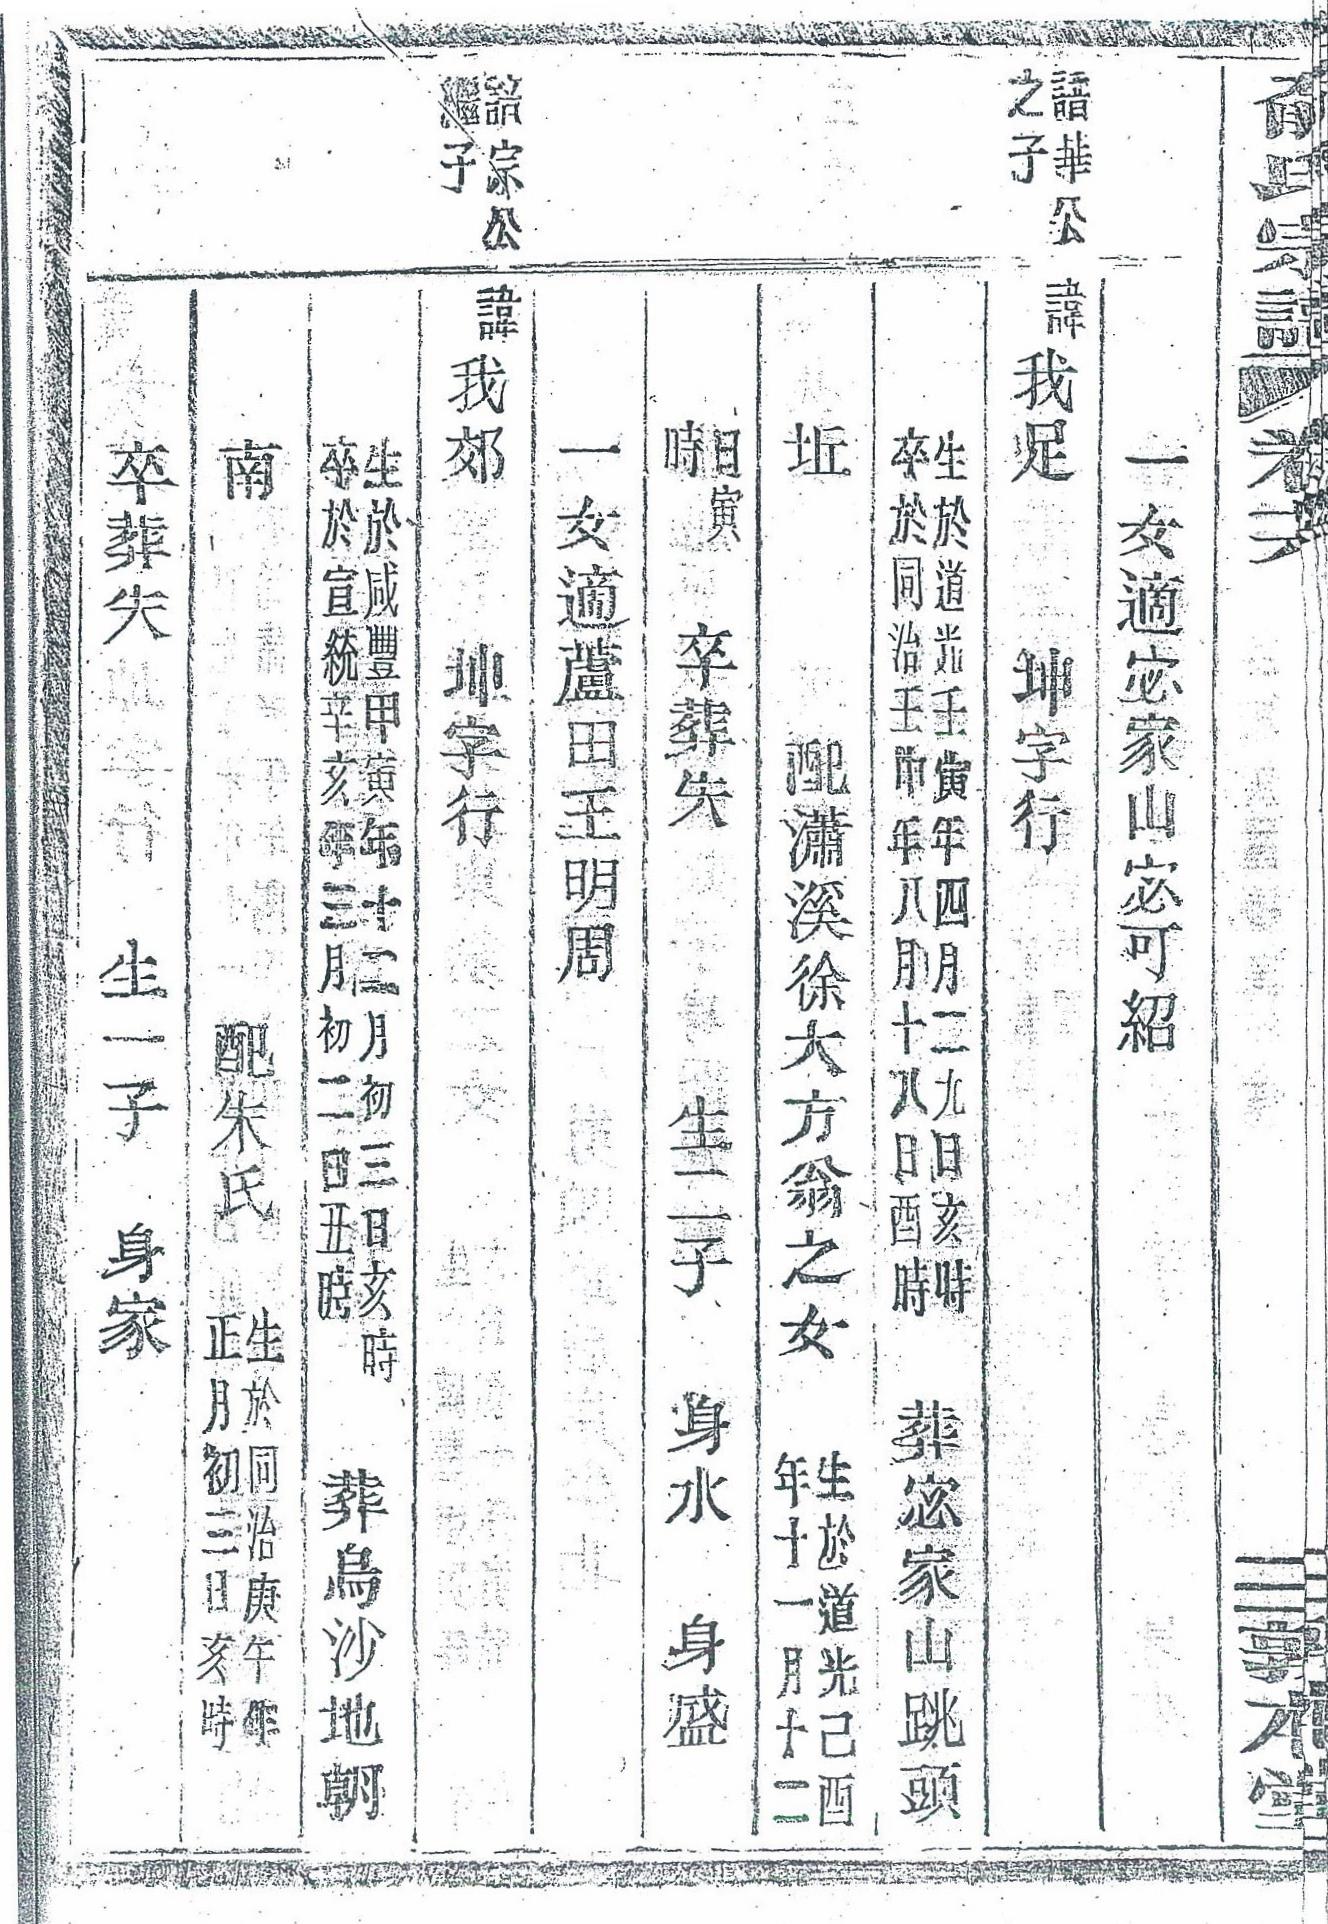 一女適宓家山宓可紹
諎華公
之子
諱我足 坤字行
生於道光壬寅年四月二九日亥時
卒於同治壬申年八月十八日酉時
葬宓家山跳頭
坵 配瀟溪徐大方翁之女
生於道光己酉
年十一月十二
日寅
時
卒葬失 生二子 身水 身盛
一女適蘆田王明周
宗公
子
諱我郊 坤字行
生於咸豐甲寅年十二月初三日亥時
卒於宣統辛亥年三月初二日丑時
葬烏沙地朝
南 配朱氏
生於同治庚午年
正月初三日亥時
卒葬失 生一子 身家